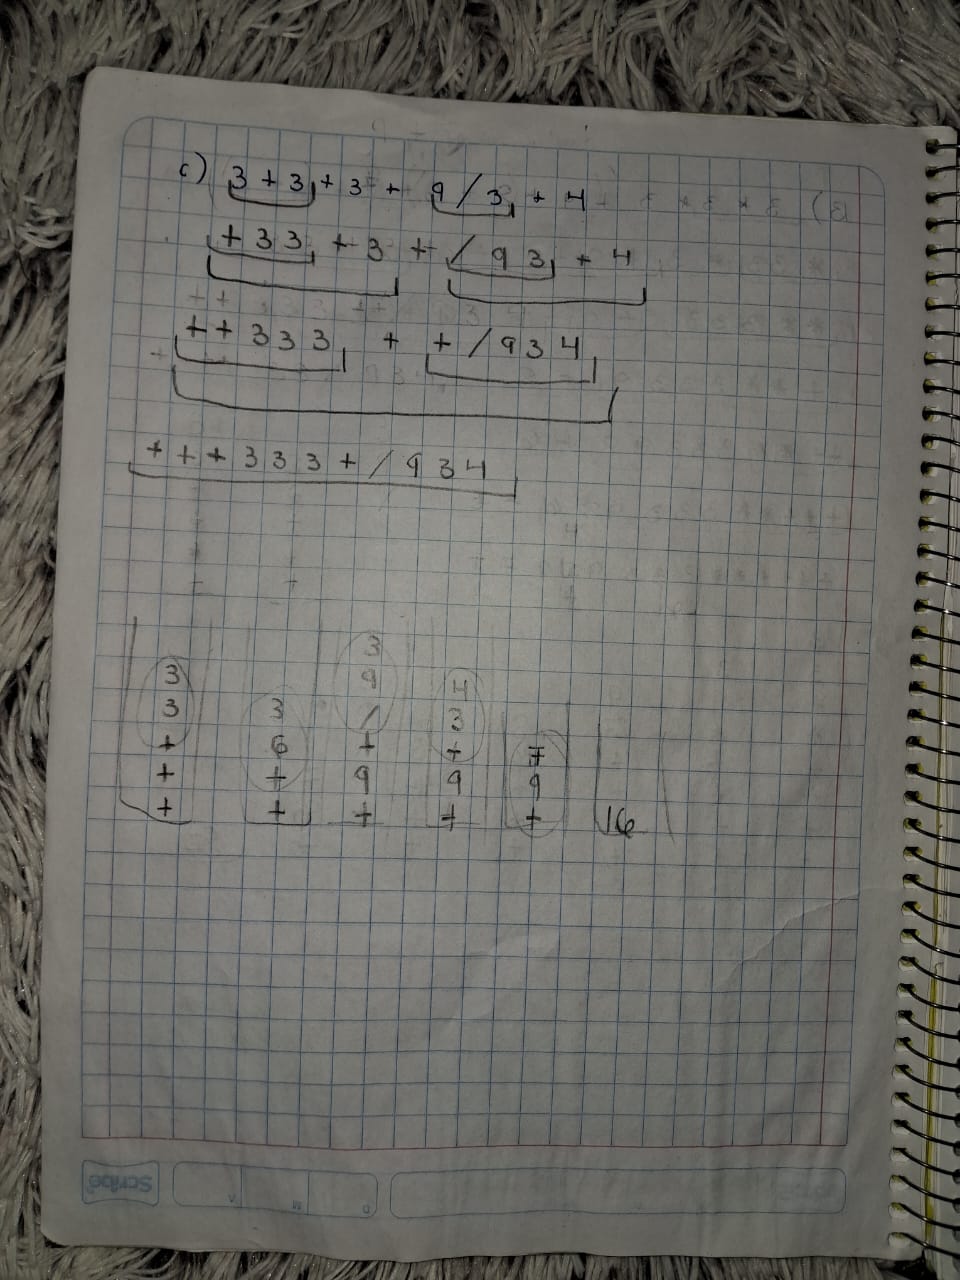 c) 3 + 3 + 3 + 9 / 3 + 4
+ 3 3 + 3 + / 9 3 + 4
+ + 3 3 3 + + / 9 3 4
+ + + 3 3 3 + / 9 3 4
3
3 9 4
3 3 / 3
+ 6 + + 7
+ + 9 9 9
+ + + + + 16
Scribe